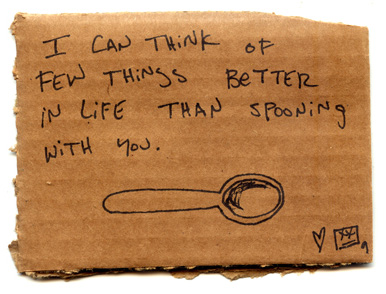 I CAN THINK OF
FEW THINGS BETTER
IN LIFE THAN SPOONING
WITH YOU.